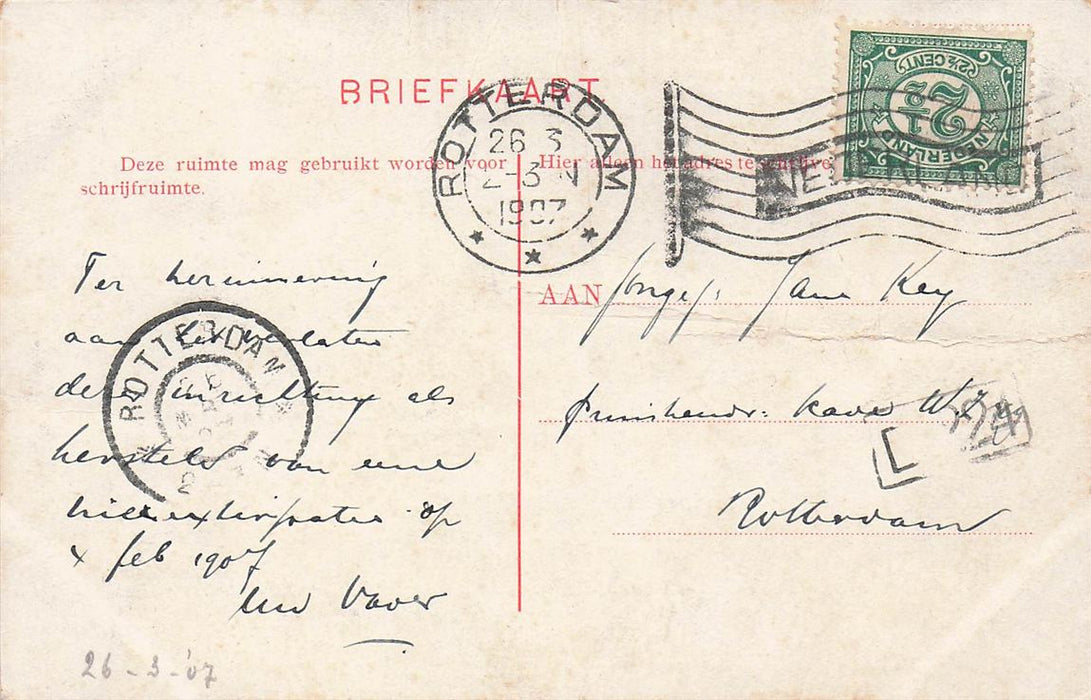 BRIEFKAART
2½ CENT
NEDERLAND
ROTTERDAM
26 3
2-3 N
1907
NEDERLAND
Deze ruimte mag gebruikt worden voor
schrijfruimte.
Hier alleen het adres te
Ter herinnering
aan het verlaten
dezer inrichting als
herstel van eene
op
4 feb 1907
Uw Vader
ROTTERDAM
26-3-'07
AAN Jongej: Jane Key
Pruishendr: Kade
L
Rotterdam